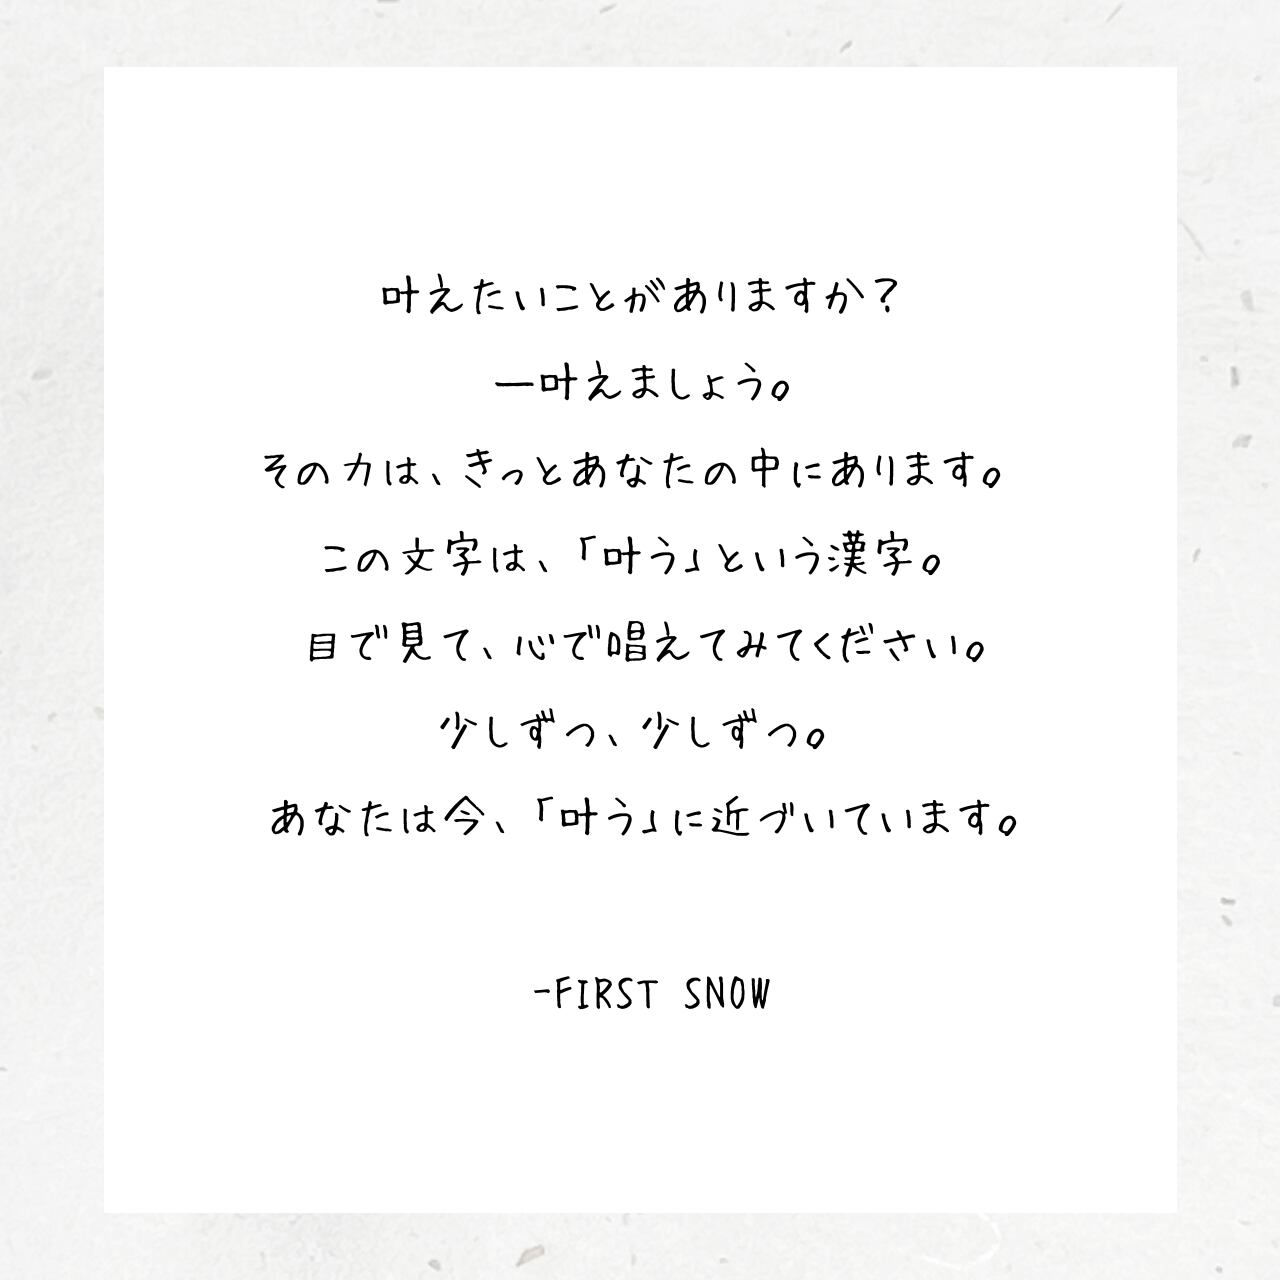 叶えたいことがありますか？
一叶えましょう。
その力は、きっとあなたの中にあります。
この文字は、「叶う」という漢字。
目で見て、心で唱えてみてください。
少しずつ、少しずつ。
あなたは今、「叶う」に近づいています。
-FIRST SNOW